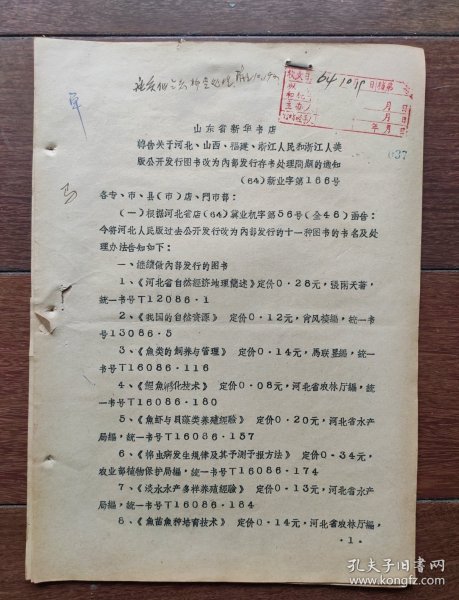 64 10 19
收文
月 日
月 日
年 月 日
山东省新华书店
轉告关于河北、山西、福建、浙江人民和浙江人美
版公开发行图书改为內部发行存书处理問題的通知
(64)新业字第166号
各专、市、县(市)店、門市部:
(一)根据河北省店(64)冀业机字第56号(金46)函告:
今将河北人民版过去公开发行改为內部发行的十一种图书的书名及处
理办法告知如下:
一、继續做內部发行的图书
1、《河北省自然經济地理簡述》定价0·28元,張雨天著,
統一书号T12086·1
2、《我国的自然資源》 定价0·12元,肯风棱編,統一书
号13086·5
3、《魚类的飼养与管理》 定价0·14元,馬联显編,統一
书号T16086·116
4、《鯉魚孵化技术》 定价0·08元,河北省农林厅編,統
一书号T16086·180
5、《魚虾与貝藻类养殖經驗》 定价0·20元,河北省水产
局編,統一书号T16086·157
6、《棉虫病发生規律及其予測予报方法》 定价0·34元,
农业部植物保护局編,統一书号T16086·174
7、《淡水水产多样养殖經驗》 定价0·13元,河北省水产
局編,統一书号T16086·184
8、《魚苗魚种培育技术》 定价0·14元,河北省农林厅編,
·1·
孔夫子旧书网
www.kongfz.com